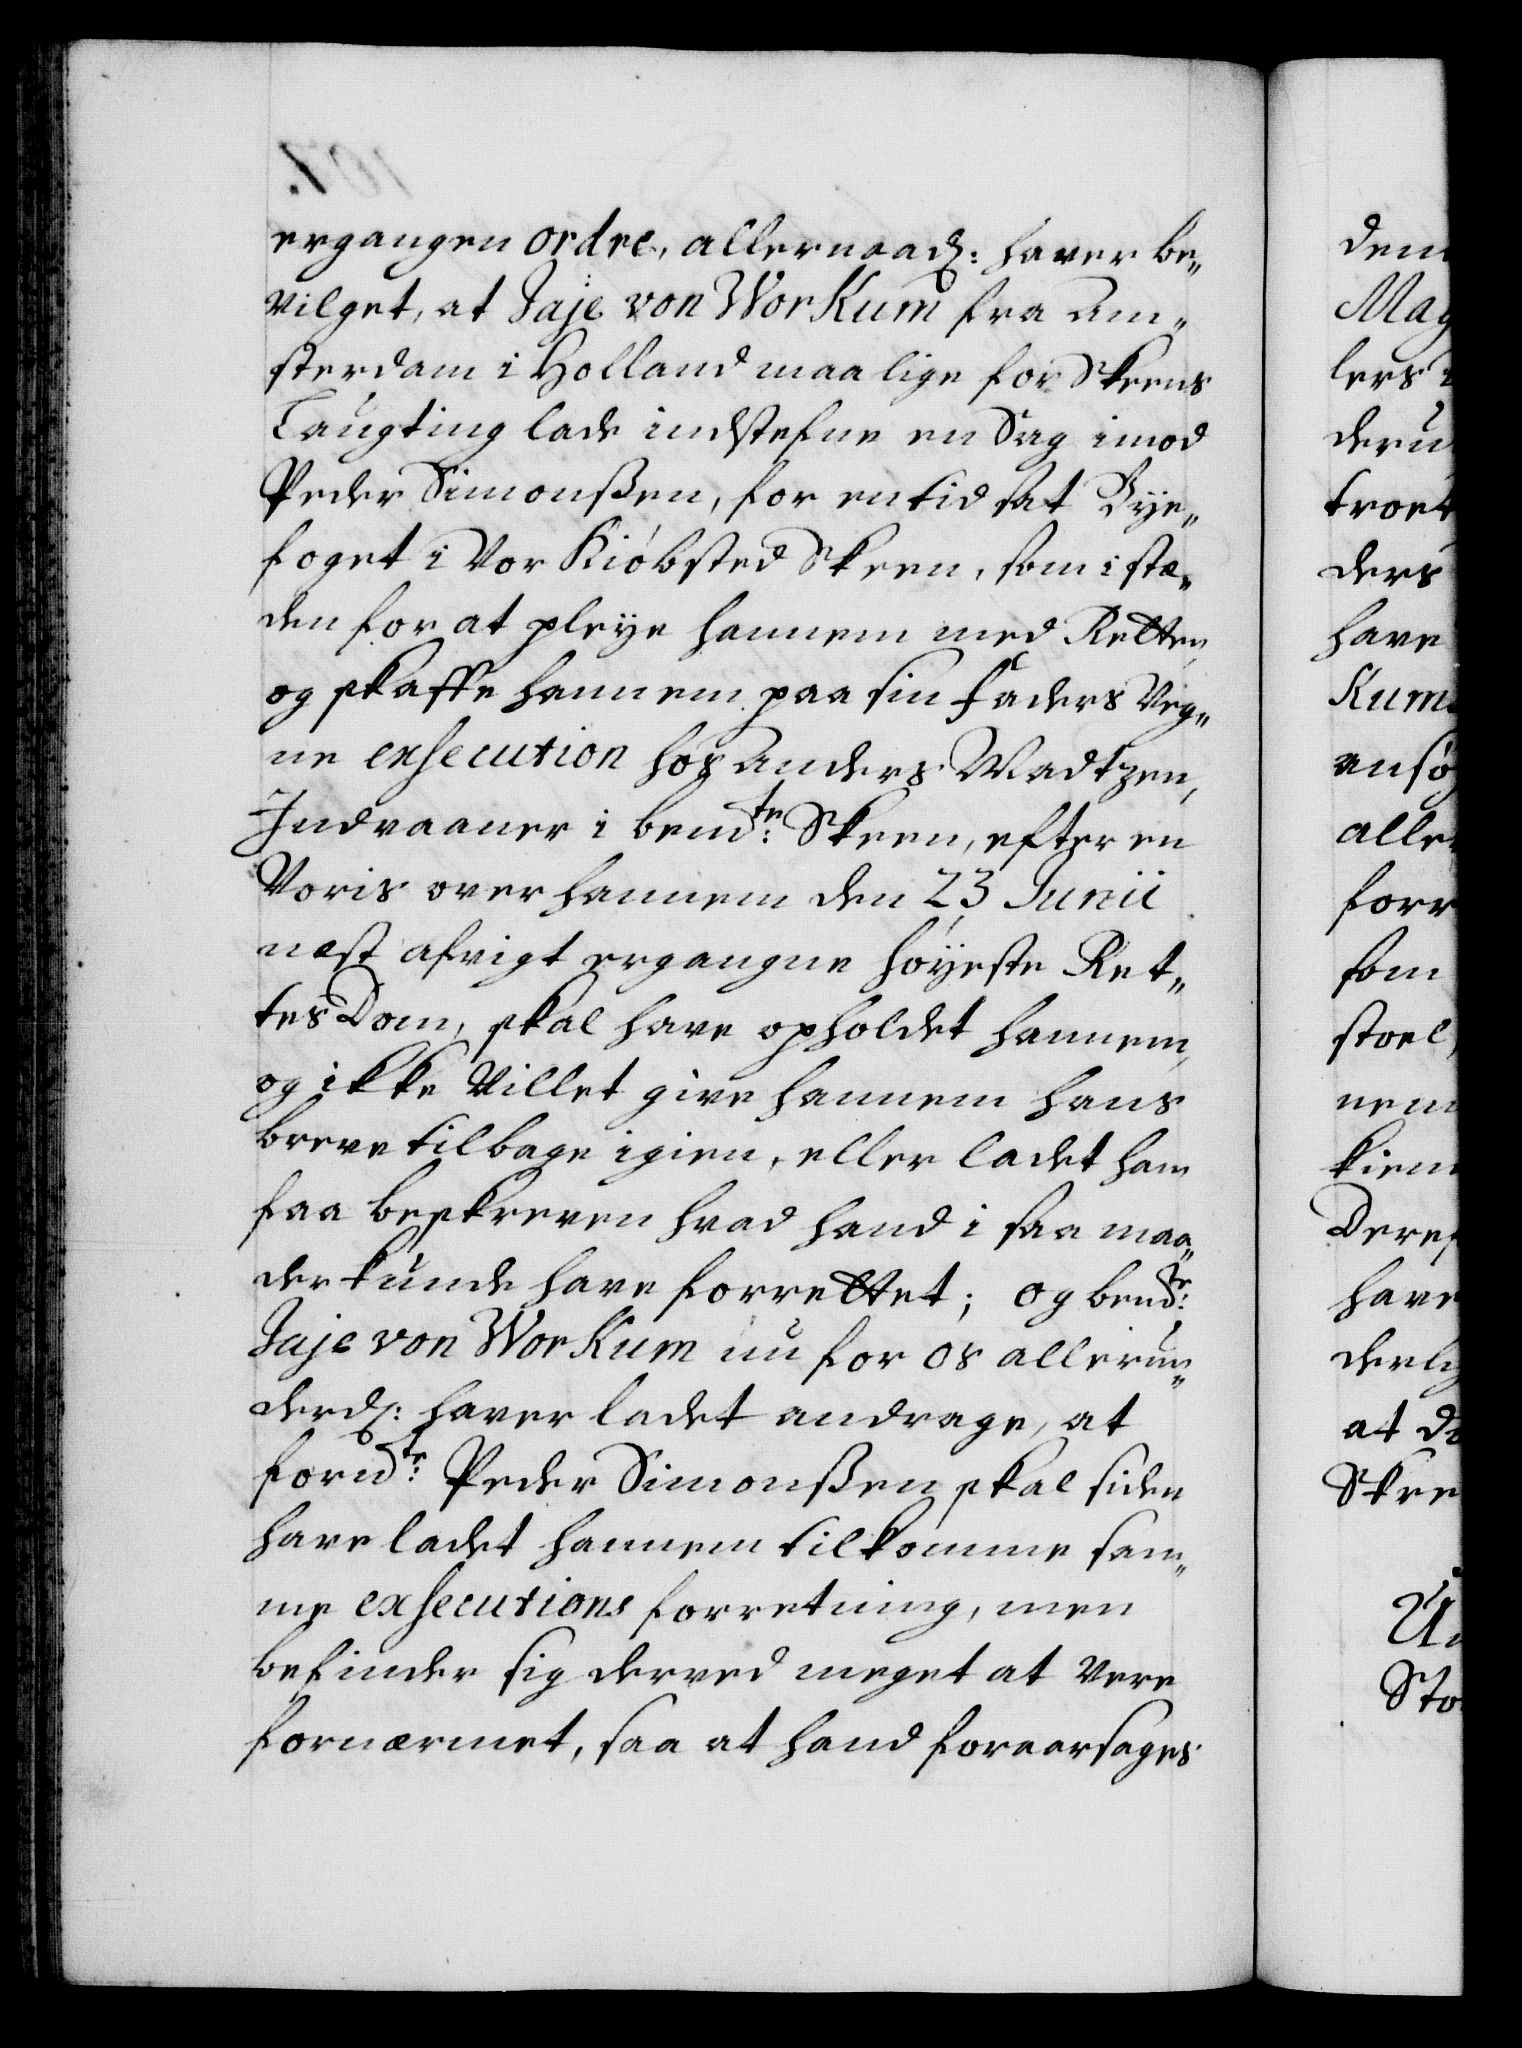 ergangen ordre, allernaad: haver be„
vilget, at Jaje von WorKum fra Am„
sterdam i Holland maa lige for Skeens
Laugting lade indstefne en Sag imod
Peder Simonßen, for en tid sat Bye„
foget i Vor Kiøbsted Skeen, som i stæ„
den for at pleye hannem med Retten,
og skaffe hannem paa sin Faders Veg„
ne exsecution hos Anders Madtzen,
Indvaaner i bemdte: Skeen, efter en
Voris over hannem den 23 Junii
næst afvigt ergangne høyeste Ret„
tes Dom, skal have opholdet hannem,
og ikke Villet give hannem hans
breve tilbage igien, eller ladet ham
faa beskreven hvad hand i saa maa„
der kunde have forrettet; og bemdte:
Jaje von WorKum nu for os allerun„
derd: haver ladet andrage, at
forndte: Peder Simonßen skal siden
have ladet hannem tilkomme sam„
me exsecutions forretning, men
befinder sig derved meget at Vere
fornærmet, saa at hand foraarsages